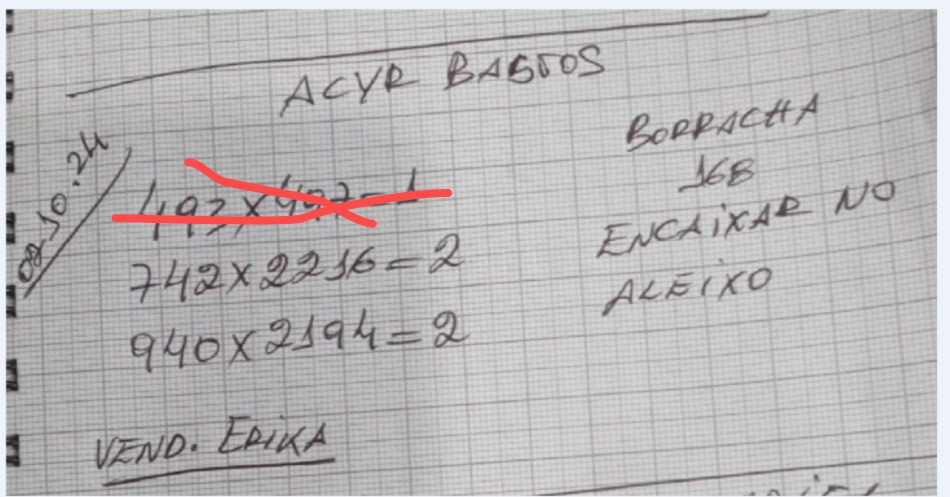 ACYR BASTOS
02.10.24
742x2216=2
940x2194=2
BORRACHA
168
ENCAIXAR NO
ALEIXO
VEND. ERIKA